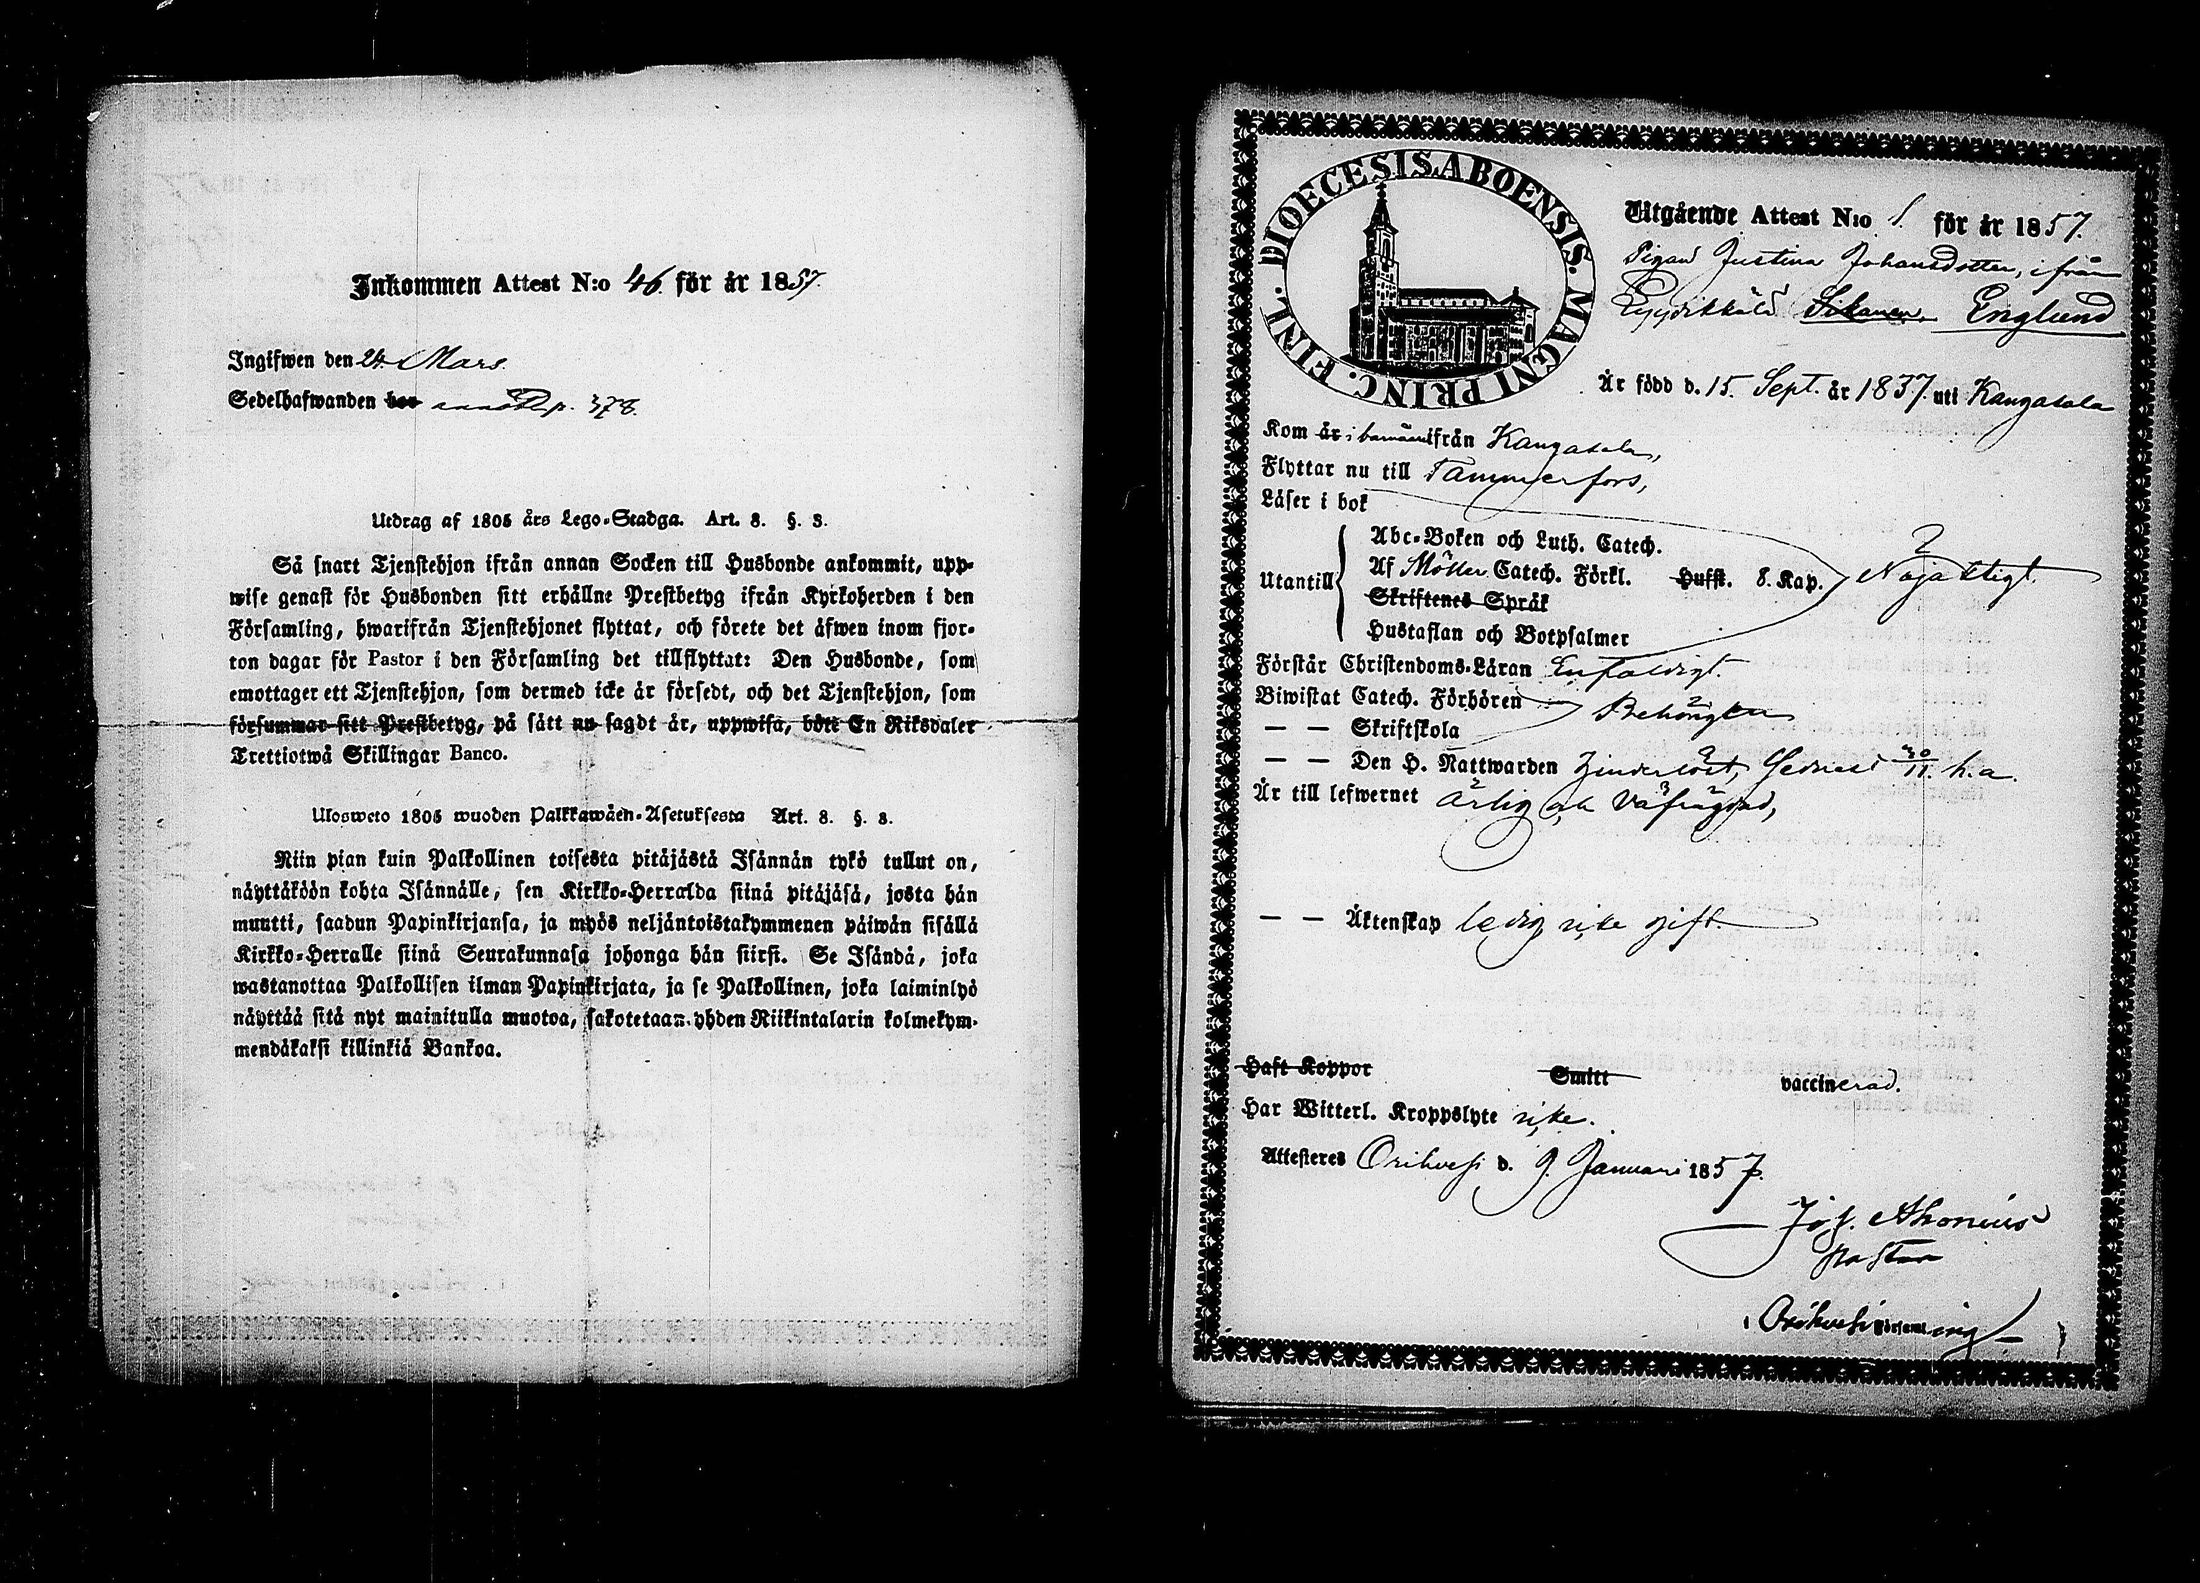 Inkommen Attest N:o 46. för år 1857.
Ingifwen den 24. Mars.
Sedelhafwanden bor p. 378.
Utdrag af 1805 års Lego-Stadga. Art. 8. §. 3.
Så snart Tjenstehjon ifrån annan Socken till Husbonde ankommit, upp-
wise genast för Husbonden sitt erhållne Prestbetyg ifrån Kyrkoherden i den
Församling, hwarifrån Tjenstehjonet flyttat, och förete det äfwen inom fjor-
ton dagar för Pastor i den Församling det tillflyttat: Den Husbonde, som
emottager ett Tjenstehjon, som dermed icke är försedt, och det Tjenstehjon, som
försummar sitt Prestbetyg, på sätt nu sagdt är, uppwisa, böte En Riksdaler
Trettiotwå Skillingar Banco.
Ulosweto 1805 wuoden Palkkawäen-Asetuksesta Art. 8. §. 3.
Niin pian kuin Palkollinen toisesta pitäjästä Isännän tykö tullut on,
näyttäköön kohta Isännälle, sen Kirkko-Herralda siinä pitäjäsä, josta hän
muutti, saadun Papinkirjansa, ja myös neljäntoistakymmenen päiwän sisällä
Kirkko-Herralle siinä Seurakunnasa johonga hän siirsi. Se Isändä, joka
wastanottaa Palkollisen ilman Papinkirjata, ja se Palkollinen, joka laiminlyö
näyttää sitä nyt mainitulla muotoa, sakotetaan yhden Riikintalarin kolmekym-
mendäkaksi killinkiä Bankoa.
DIOECESIS ABOENSIS. MAGNI PRINC. FINL.
Utgående Attest N:o 1. för år 1857.
Pigan Justina Johansdotter, ifrån
Englund
Är född d. 15. Sept. år 1837. uti Kangasala
Kom år i barnåren ifrån Kangasala,
Flyttar nu till Tammerfors,
Läser i bok
Utantill
Abc-Boken och Luth. Catech.
Af Möller Catech. Förkl. Husst. 8. Kap. Nöjaktigt.
Skriftenes Språk
Hustaflan och Botpsalmer
Förstår Christendoms-Läran Enfaldigt.
Biwistat Catech. Förhören Behörigen
— — Skriftskola
— — Den H. Nattwarden senast 30/11. h.a.
Är till lefwernet ärlig och välfrägdad,
— — Äktenskap ledig, icke gift.
Haft Koppor Smitt vaccinerad.
Har Witterl. Kroppslyte icke.
Attesteres Orihvesi d. 9. Januari 1857.
Jos. Ahonius
Pastor
i Orihvesi Församling.